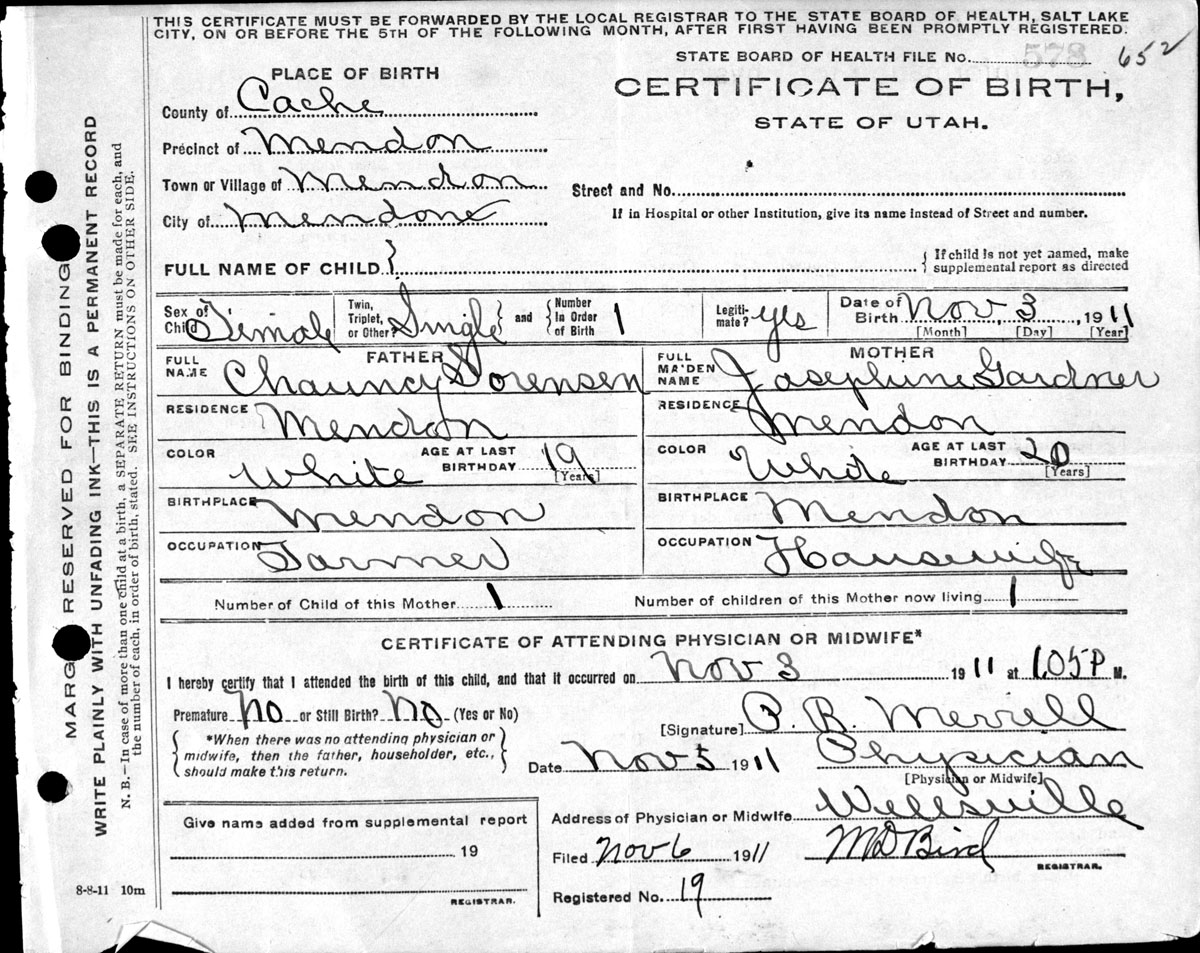 THIS CERTIFICATE MUST BE FORWARDED BY THE LOCAL REGISTRAR TO THE STATE BOARD OF HEALTH, SALT LAKE
CITY, ON OR BEFORE THE 5TH OF THE FOLLOWING MONTH, AFTER FIRST HAVING BEEN PROMPTLY REGISTERED.
STATE BOARD OF HEALTH FILE No. 578 652
PLACE OF BIRTH
CERTIFICATE OF BIRTH,
STATE OF UTAH.
County of Cache
Precinct of Mendon
Town or Village of Mendon
Street and No.
City of Mendone
If in Hospital or other Institution, give its name instead of Street and number.
FULL NAME OF CHILD
If child is not yet named, make
supplemental report as directed
Sex of Child Female
Twin, Triplet, or Other? Single and Number In Order of Birth 1
Legitimate? yes
Date of Birth Nov 3, 1911
[Month] [Day] [Year]
FATHER
MOTHER
FULL NAME Chauncy Sorensen
FULL MAIDEN NAME Josephine Gardner
RESIDENCE Mendon
RESIDENCE Mendon
COLOR White AGE AT LAST BIRTHDAY 19 [Years]
COLOR White AGE AT LAST BIRTHDAY 20 [Years]
BIRTHPLACE Mendon
BIRTHPLACE Mendon
OCCUPATION Farmer
OCCUPATION Housewife
Number of Child of this Mother 1
Number of children of this Mother now living 1
CERTIFICATE OF ATTENDING PHYSICIAN OR MIDWIFE*
I hereby certify that I attended the birth of this child, and that it occurred on Nov 3 1911 at 1.05 P M.
Premature No or Still Birth? No (Yes or No)
[Signature] P. B. Merrell
*When there was no attending physician or
midwife, then the father, householder, etc.,
should make this return.
Date Nov 5 1911
Physician
[Physician or Midwife]
Address of Physician or Midwife Wellsville
Filed Nov 6 1911
M D Bird
REGISTRAR.
Registered No. 19
Give name added from supplemental report
19
REGISTRAR.
8-8-11 10m
MARG RESERVED FOR BINDING
WRITE PLAINLY WITH UNFADING INK—THIS IS A PERMANENT RECORD
N. B.—In case of more than one child at a birth, a SEPARATE RETURN must be made for each, and
the number of each, in order of birth, stated. SEE INSTRUCTIONS ON OTHER SIDE.